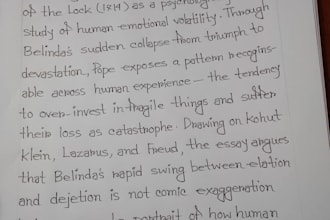 of the Lock (1714) as a psychological
study of human emotional volatility. Through
Belinda's sudden collapse from triumph to
devastation, Pope exposes a pattern recognis-
able across human experience — the tendency
to over-invest in fragile things and suffer
their loss as catastrophe. Drawing on Kohut
Klein, Lazarus, and Freud, the essay argues
that Belinda's rapid swing between elation
and dejection is not comic exaggeration
portrait of how human